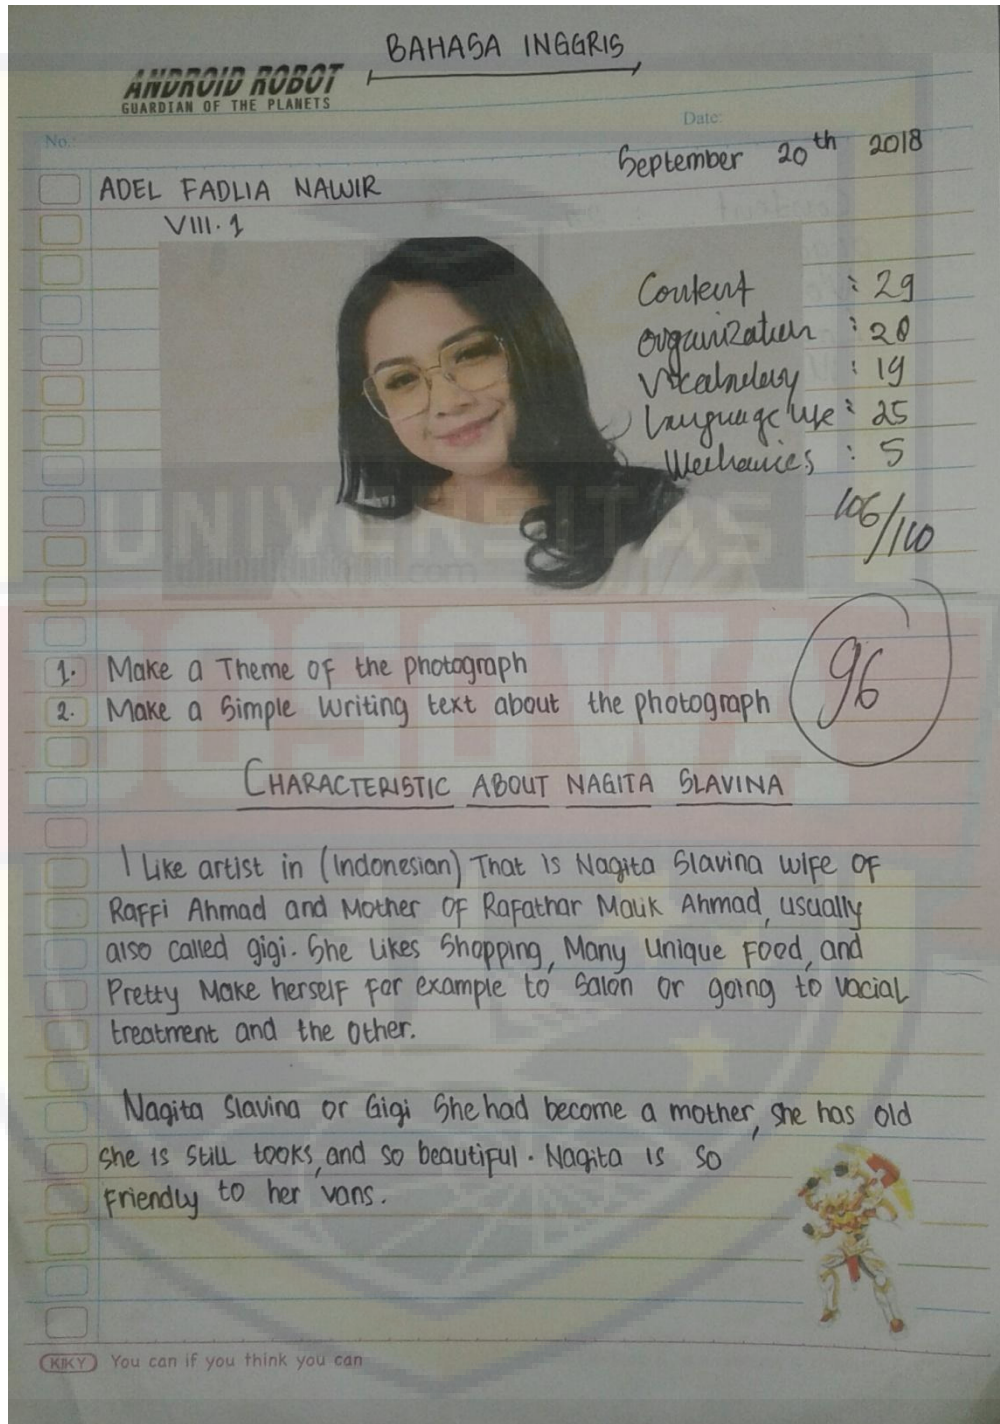 BAHASA INGGRIS
ANDROID ROBOT
GUARDIAN OF THE PLANETS
No.:
Date:
September 20th 2018
ADEL FADLIA NAWIR
VIII.1
Content : 29
Organization : 28
Vocabulary : 19
Language use : 25
Mechanics : 5
106/110
UNIVERSITAS
.com
BOSOWA
96
1. Make a Theme of the photograph
2. Make a Simple Writing text about the photograph
CHARACTERISTIC ABOUT NAGITA SLAVINA
I Like artist in (Indonesian) That Is Nagita Slavina wife of
Raffi Ahmad and Mother Of Rafathar Malik Ahmad, usually
also called gigi. She Likes Shopping, Many Unique Food, and
Pretty Make herself for example to Salon or going to vacial
treatment and the other.
Nagita Slavina or Gigi She had become a mother, she has old
she is Still tooks, and so beautiful. Nagita is so
friendly to her vans.
KIKY You can if you think you can